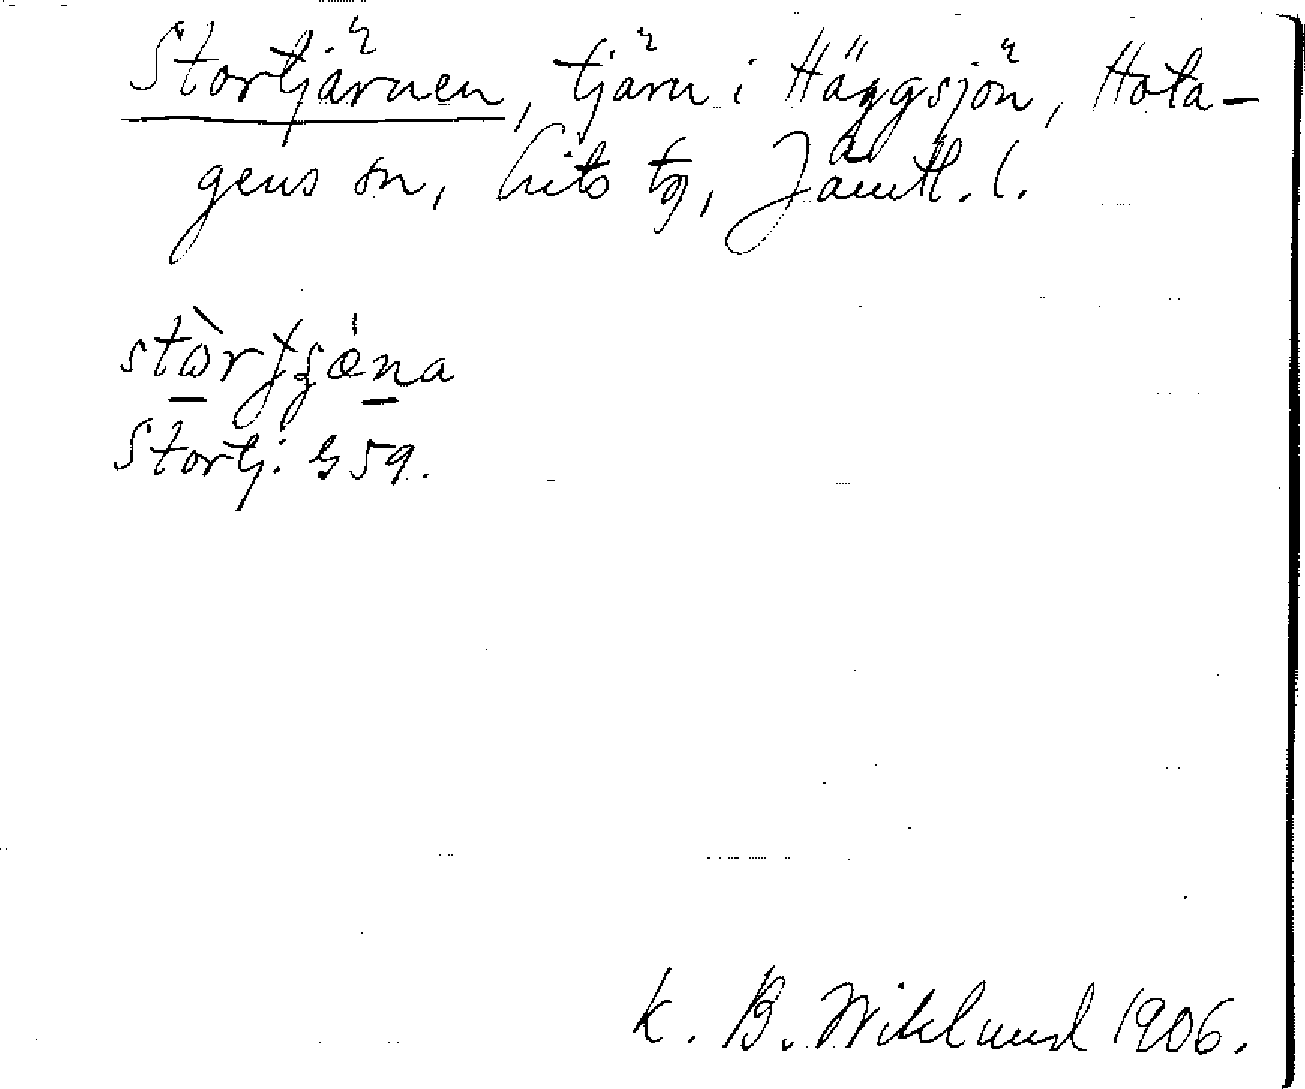 Stortjärnen, tjärn i Häggsjön, Hota-
gens sn, Lits tg, Jämtl. l.
Stortj. § 59.
K. B. Wiklund 1906.